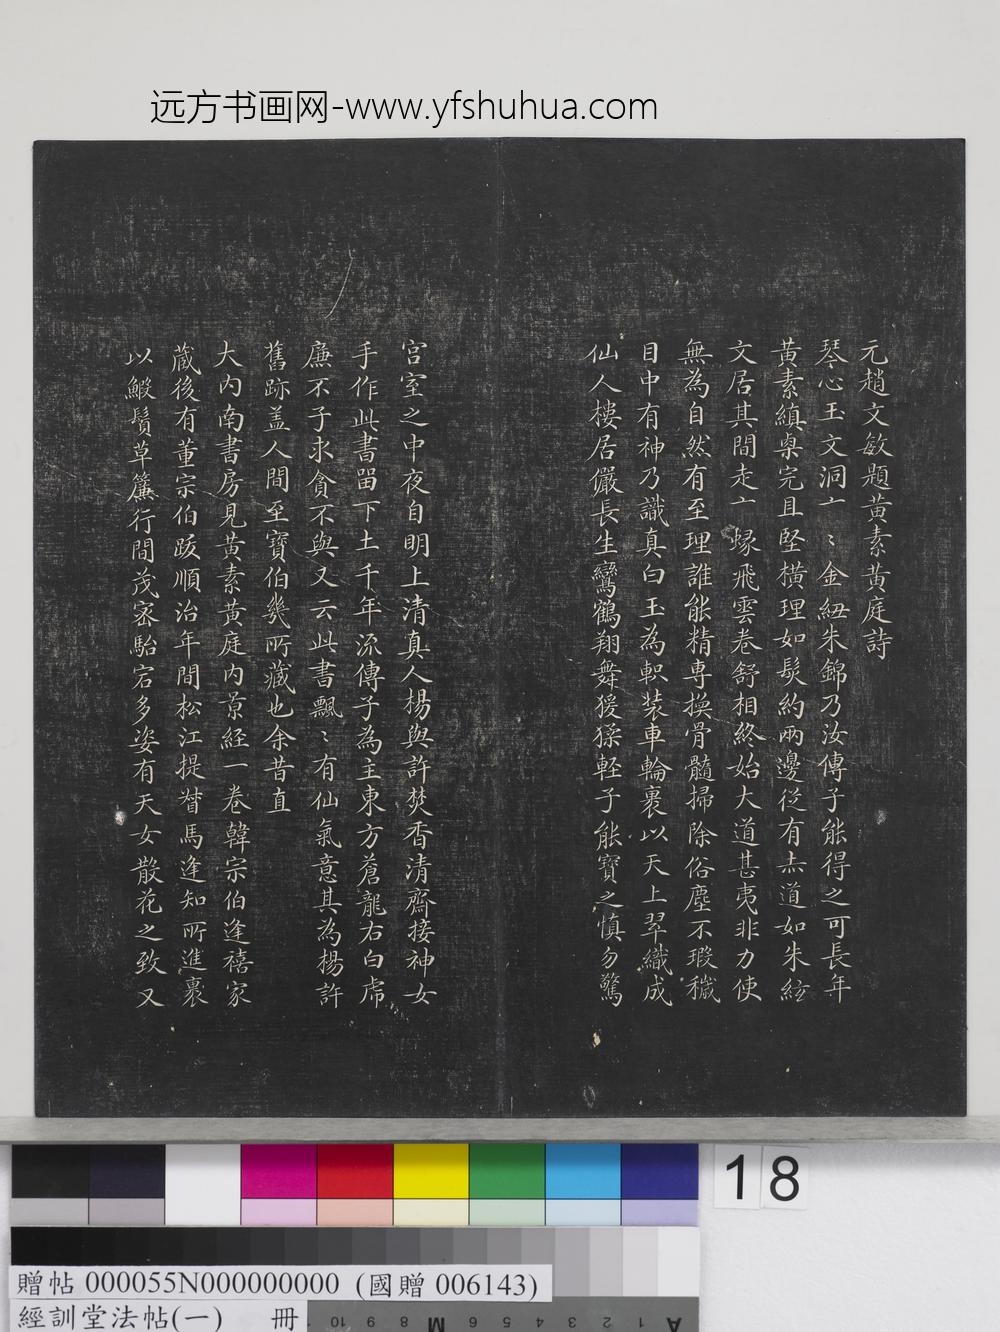 远方书画网-www.yfshuhua.com
元趙文敏題黃素黃庭詩
琴心玉文洞亠〻金紐朱錦乃汝傳子能得之可長年
黃素縝槀完且堅橫理如髮約兩邊從有赤道如朱絃
文居其間走亠蜧飛雲卷舒相終始大道甚夷非力使
無為自然有至理誰能精專換骨髓掃除俗塵不瑕穢
目中有神乃識真白玉為軹装車輪裹以天上翠織成
仙人樓居儼長生鸞鶴翔舞猨猱輕子能寶之慎勿驚
宫室之中夜自明上清真人楊與許焚香清齋接神女
手作此書留下土千年流傳子為主東方蒼龍右白虎
廉不子求貪不與又云此書飄〻有仙氣意其為楊許
舊跡盖人間至寶伯幾所藏也余昔直
大内南書房見黃素黃庭内景經一卷韓宗伯逢禧家
蔵後有董宗伯跋順治年間松江提督馬逢知所進裹
以鰕鬚草簾行間茂宻駘宕多姿有天女散花之致又
18
贈帖 000055N000000000 (國贈 006143)
經訓堂法帖(一) 冊
10 9 8 M 6 5 4 3 2 1 A